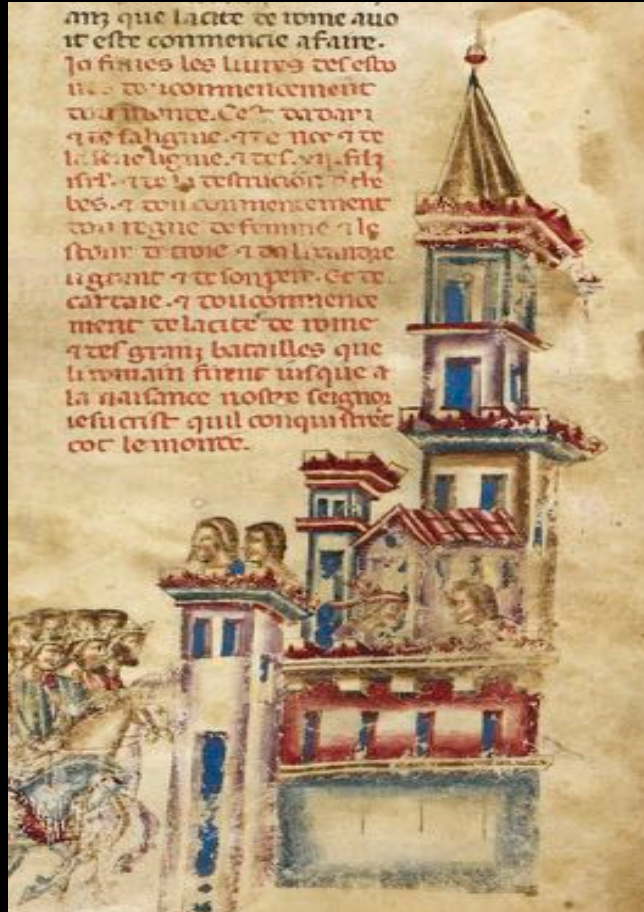 anz que lacite de rome auo
it este conmencie afaire.
Ici finies les liures des esto
ires dou conmencement
dou monde. Cest dadam
⁊ de sa ligne. ⁊ de noe ⁊ de
la seue ligne. ⁊ des .xij. filz
isrl. ⁊ de la destrucion de the
bes. ⁊ dou conmencement
dou regne de femine ⁊ le
stoire de troie ⁊ dalixandre
li grant ⁊ de son pere. Et de
cartaie. ⁊ dou conmence
ment de lacite de rome
⁊ des granz batailles que
li romain firent iusque a
la naisance nostre seignor
iesucrist quil conquistrent
tot le monde.